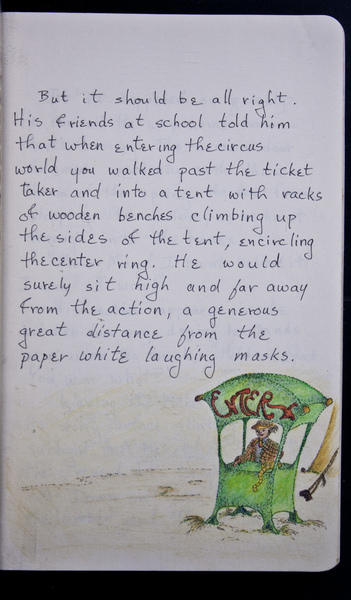 But it should be all right.
His friends at school told him
that when entering thecircus
world you walked past the ticket
taker and into a tent with racks
of wooden benches climbing up
the sides of the tent, encircling
thecenter ring. He would
surely sit high and far away
from the action, a generous
great distance from the
paper white laughing masks.
ENTER